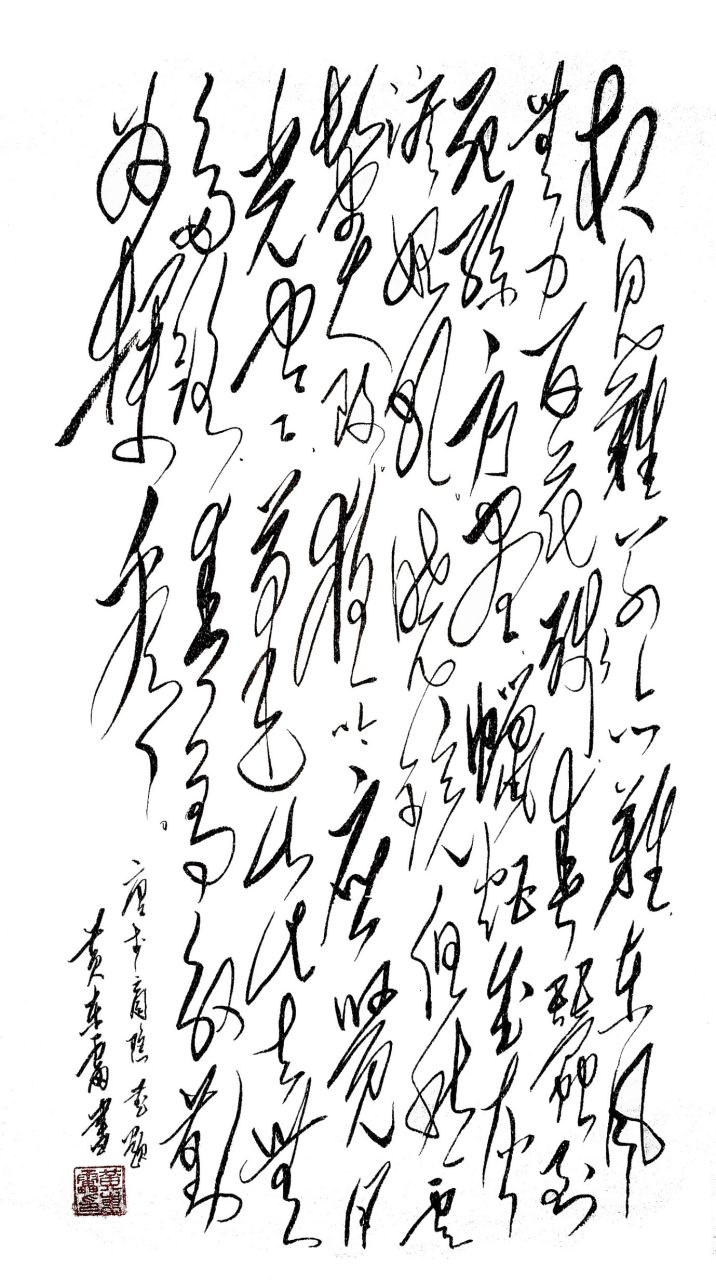 相見難别亦難東風
無力百花殘春蠶到
死絲方盡蠟炬成灰
淚始乾曉鏡但愁雲
鬢改夜吟應覺月
光寒蓬山此去無
多路青鳥殷勤
為探看
唐李商隱無題
黄東雷書